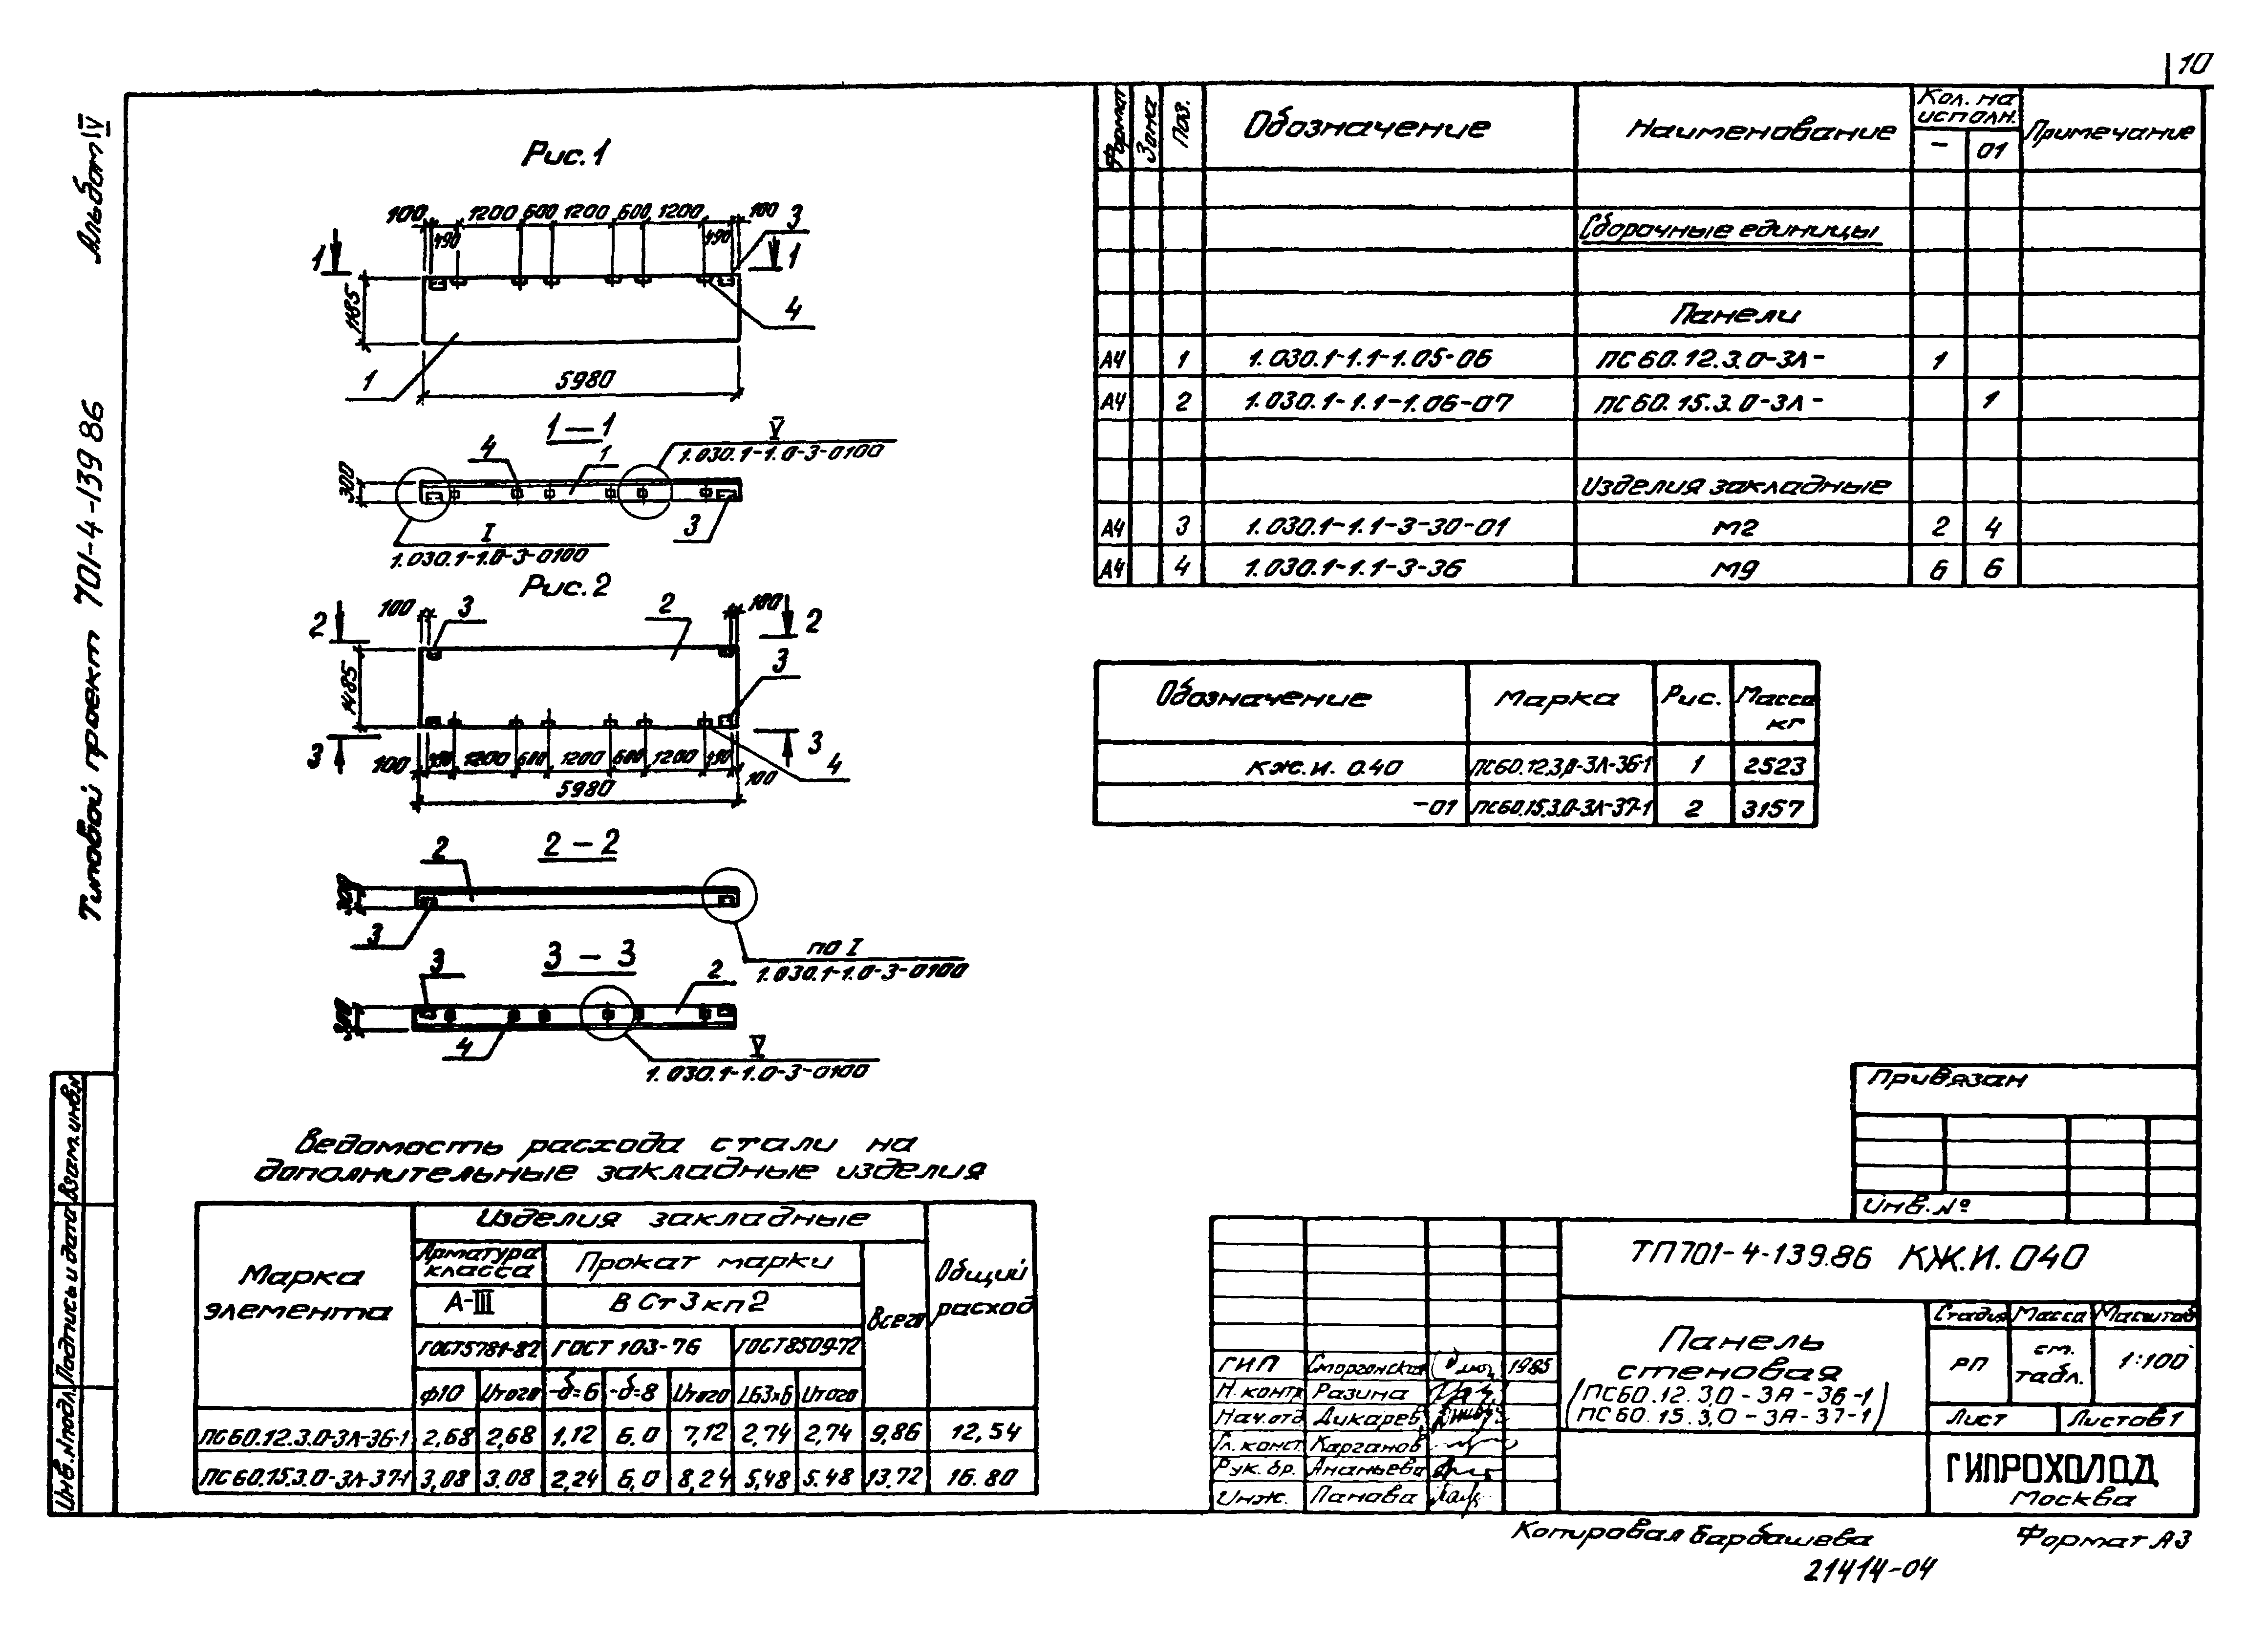 10
Альбом IV
Типовой проект 701-4-139 86
Инв.№подл. Подпись и дата Взам.инв.№
Рис.1
100 1200 600 1200 600 1200 100 3
490 490
1 1
1185
4
1
5980
1-1
4 1 V
1.030.1-1.0-3-0100
300
3
I
1.030.1-1.0-3-0100
Рис.2
100 3 2 100
2 2
1485
3
3 3
100 490 1200 600 1200 600 1200 490 100
4
5980
2-2
2
300
3
по I
1.030.1-1.0-3-0100
3-3
3 2
300
4
V
1.030.1-1.0-3-0100
Формат Зона Поз. Обозначение Наименование Кол. на исполн. Примечание
- 01
Сборочные единицы
Панели
А4 1 1.030.1-1.1-1.05-06 ПС 60.12.3.0-3Л- 1
А4 2 1.030.1-1.1-1.06-07 ПС 60.15.3.0-3Л- 1
Изделия закладные
А4 3 1.030.1-1.1-3-30-01 М2 2 4
А4 4 1.030.1-1.1-3-36 М9 6 6
Обозначение Марка Рис. Масса кг
КЖ.И. 040 ПС60.12.3,0-3Л-36-1 1 2523
-01 ПС60.15.3.0-3Л-37-1 2 3157
Ведомость расхода стали на
дополнительные закладные изделия
Марка элемента
Изделия закладные
Общий расход
Арматура класса
Прокат марки
Всего
А-III
В Ст3кп2
ГОСТ5781-82 ГОСТ 103-76 ГОСТ8509-72
ф10 Итого -δ=6 -δ=8 Итого L63х6 Итого
ПС60.12.3.0-3Л-36-1 2,68 2,68 1,12 6.0 7,12 2,74 2,74 9,86 12,54
ПС60.15.3.0-3Л-37-1 3,08 3.08 2,24 6,0 8,24 5,48 5.48 13.72 16.80
Привязан
Инв.№
ТП701-4-139.86 КЖ.И.040
Панель
стеновая
(ПС60.12.3,0-3Л-36-1)
(ПС60.15.3,0-3Л-37-1)
Стадия Масса Масштаб
РП см. табл. 1:100
Лист Листов 1
ГИПРОХОЛОД
Москва
ГИП 1985
Н.контр Разина
Нач.отд. Дикарев
Гл.конст. Карганов
Рук.бр. Ананьева
Инж. Панова
Копировал Барбашева
Формат А3
21414-04